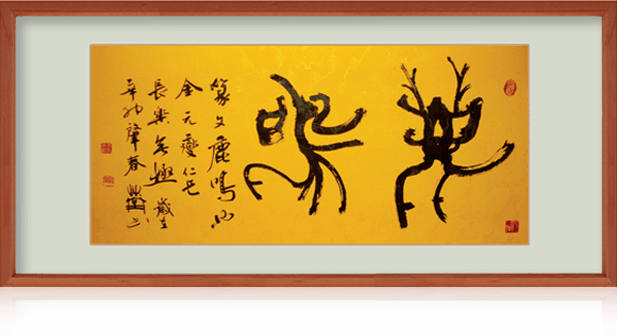 鹿鳴
篆文鹿鳴
金元燮仁兄
長樂無極歲在
辛卯肇春